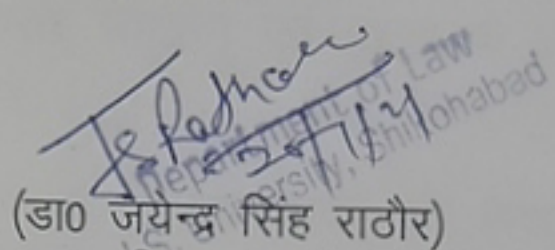 JSRathore
Department of Law
University, Shikohabad
(डा० जयेन्द्र सिंह राठौर)